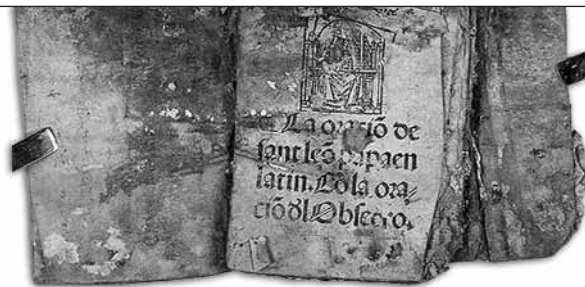 ¶ La oraciō de
sant leō papa en
latin. Cō la ora⸗
ciō dl Obsecro.